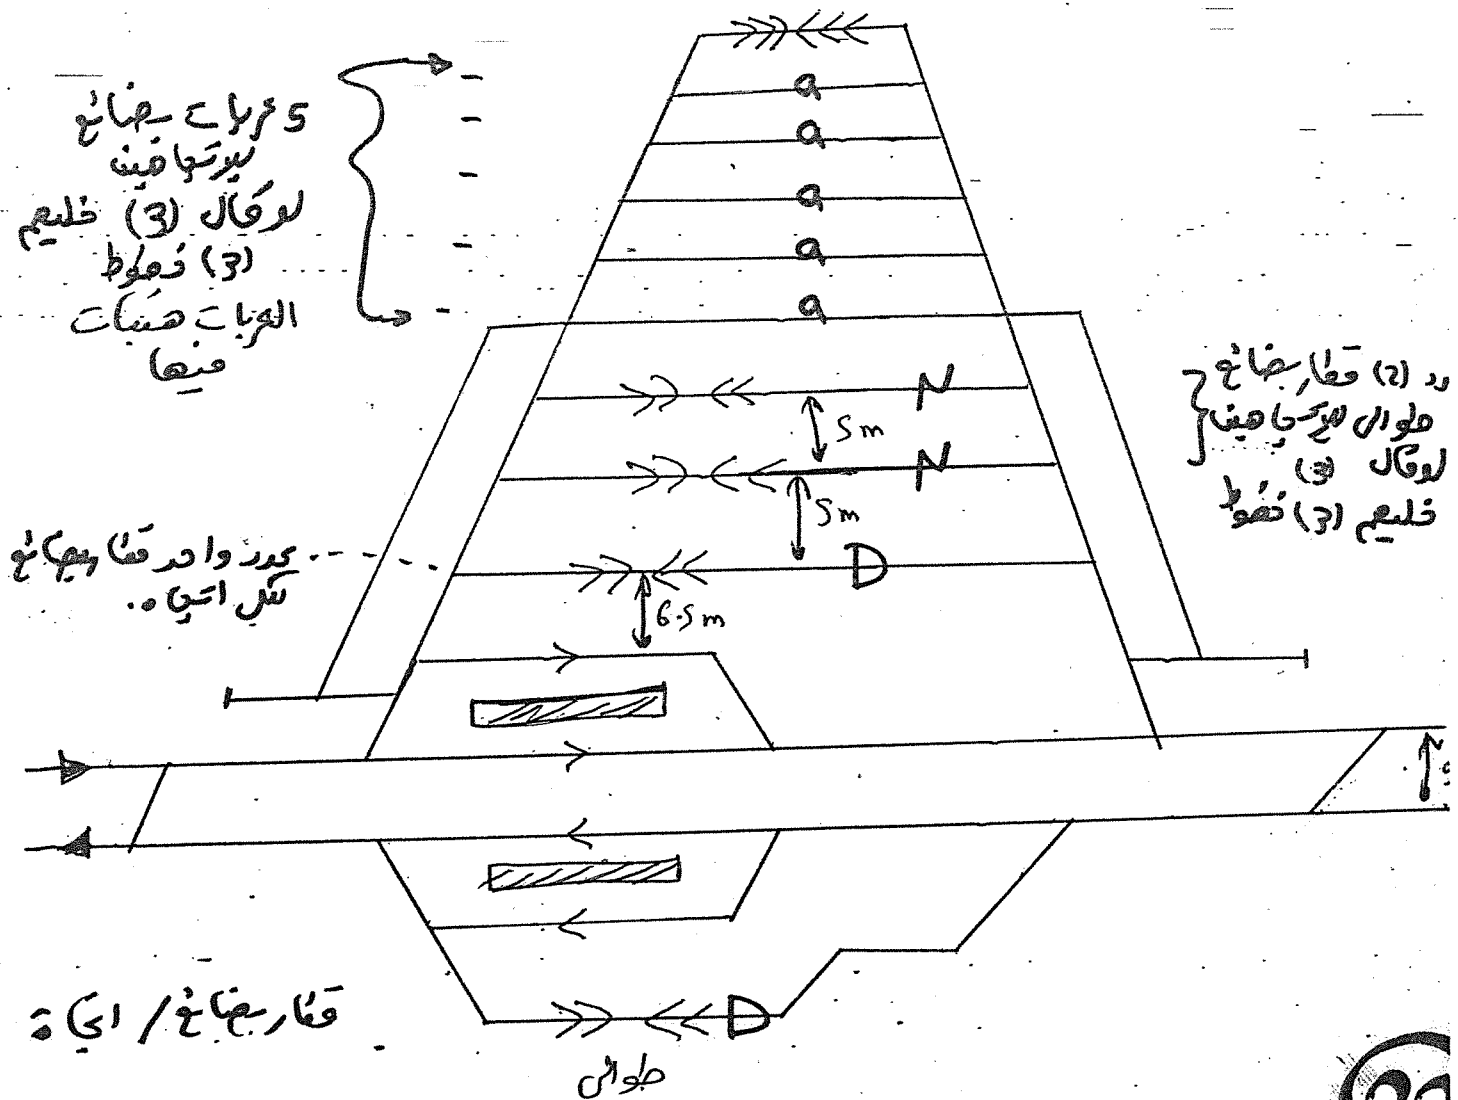 5 عربات بضائع
بالاتجاهين
لو قال (3) خليهم
(3) خطوط
العربات هتبات
فيها
a
a
a
a
a
N
5m
N
5m
D
6.5m
(2) قطار بضائع
طوالى للاتجاهين
لو قال (3)
خليهم (3) خطوط
عدد واحد قطار بضائع
لكل اتجاه.
قطار بضائع / اتجاه
D
طوالى